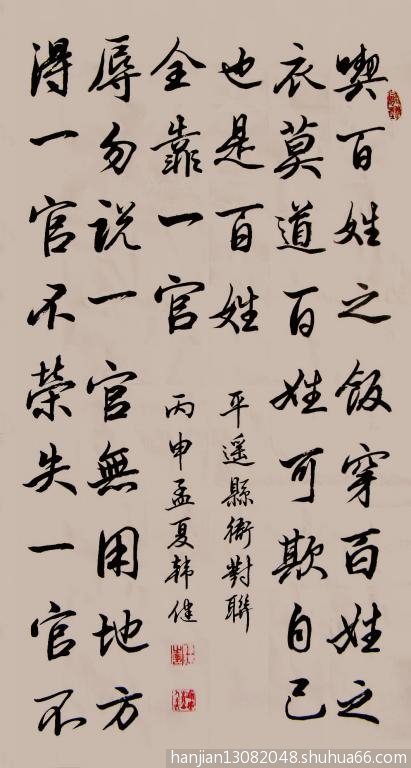 喫百姓之飯穿百姓之
衣莫道百姓可欺自己
也是百姓
平遥縣衙對聯
得一官不榮失一官不
辱勿说一官無用地方
全靠一官
丙申孟夏韩健
hanjian13082048.shuhua66.com